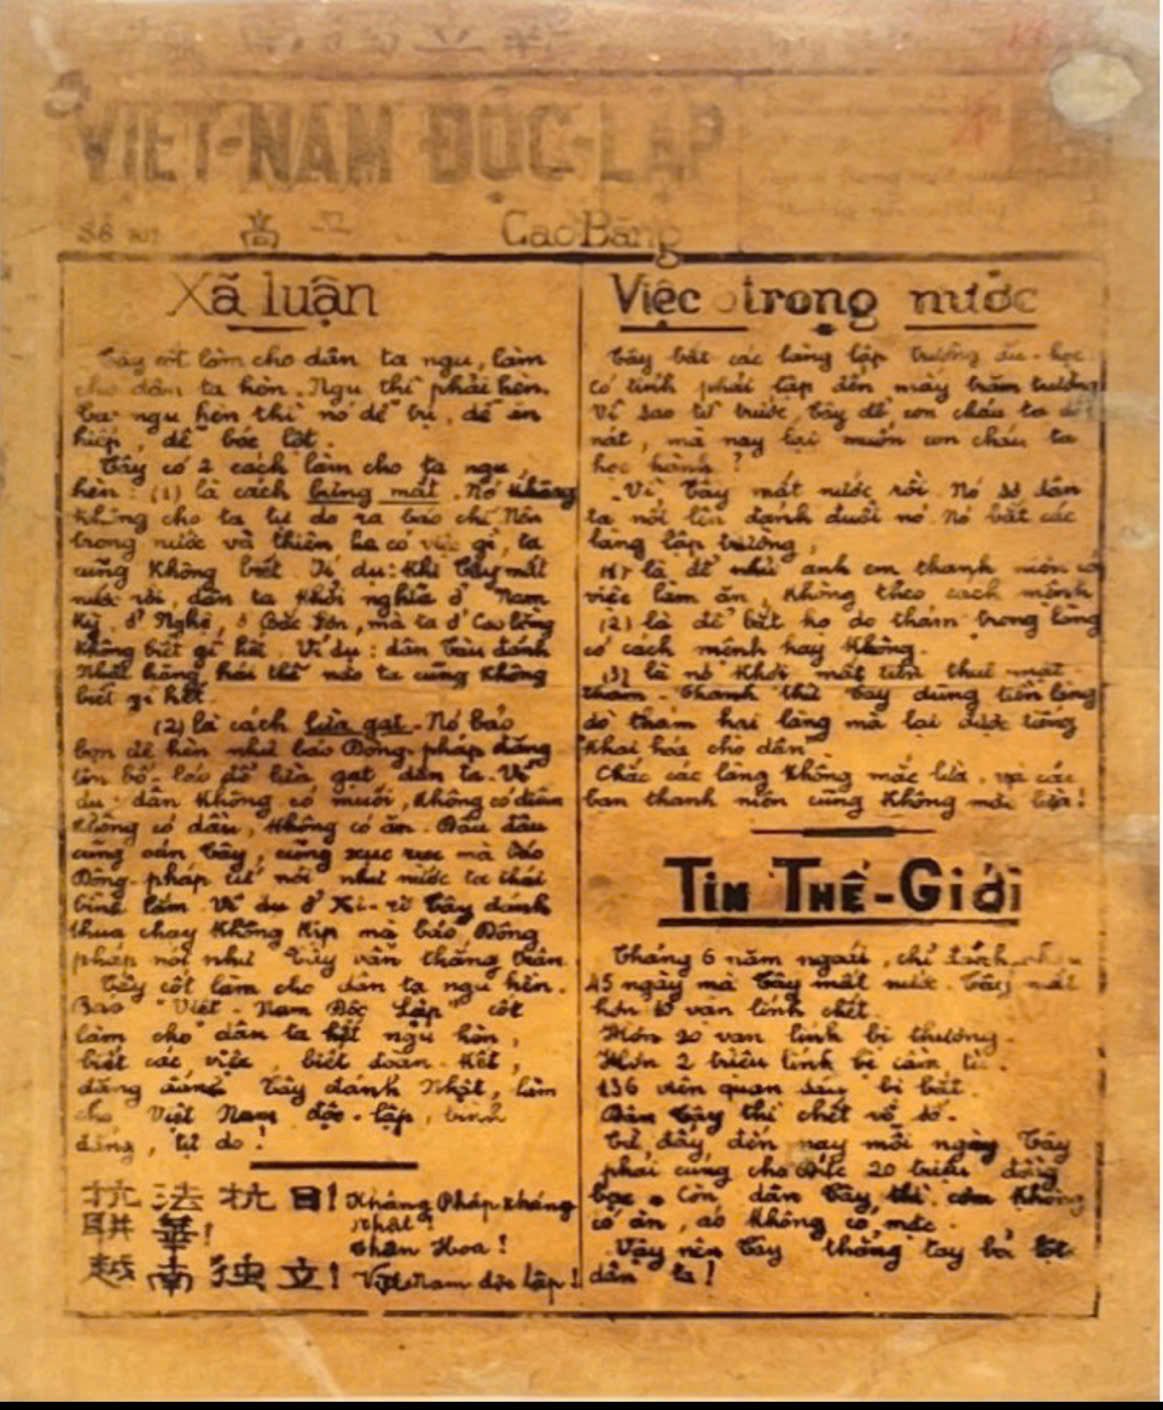 VIỆT-NAM ĐỘC-LẬP
Số
Cao Bằng
Xã luận
Tây cốt làm cho dân ta ngu, làm
cho dân ta hèn. Ngu thì phải hèn.
ngu hèn thì nó dễ trị, dễ ăn
hiếp, dễ bóc lột.
Tây có 2 cách làm cho ta ngu,
hèn: (1) là cách bưng mắt. Nó không
không cho ta tự do ra báo chí. Nên
trong nước và thiên hạ có việc gì, ta
cũng không biết. Ví dụ: Khi Tây mất
nước rồi, dân ta khởi nghĩa ở Nam
Kỳ, ở Nghệ, ở Bắc Sơn, mà ta ở Cao Bằng
không biết gì hết. Ví dụ: dân Tàu đánh
Nhật hăng hái thế nào ta cũng không
biết gì hết.
(2) là cách lừa gạt. Nó bảo
bọn đê hèn như báo Đông-pháp đăng
tin bố-láo để lừa gạt dân ta. Ví
dụ: dân không có muối, không có diêm
không có dầu, không có ăn. Đâu đâu
cũng oán Tây, cũng mà báo
Đông-pháp nói như nước ta thái
bình lắm. Ví dụ ở Xi-ri Tây đánh
thua chạy không kịp mà báo Đông
pháp nói như Tây vẫn thắng trận.
Tây cốt làm cho dân ta ngu hèn.
Báo "Việt-Nam Độc Lập" cốt
làm cho dân ta hết ngu hèn,
biết các việc, biết đoàn-kết,
đặng đánh Tây đánh Nhật, làm
cho Việt Nam độc-lập, bình
đẳng, tự do!
抗法抗日! Kháng Pháp kháng
Nhật!
聯華! Thân Hoa!
越南独立! Việt Nam độc lập!
Việc trong nước
Tây bắt các làng lập trường ấu-học
có tỉnh phải lập đến mấy trăm trường
Vì sao từ trước, Tây để con cháu ta dốt
nát, mà nay lại muốn con cháu ta
học hành?
Vì Tây mất nước rồi. Nó sợ dân
ta nổi lên đánh đuổi nó. Nó bắt các
làng lập trường,
(1) là để anh em thanh niên có
việc làm ăn, không theo cách mệnh
(2) là để bắt họ do thám trong làng
có cách mệnh hay không.
(3) là nó khỏi mất tiền thuê mật
thám. Thành thử Tây dùng tiền làng
do thám hại làng mà lại được tiếng
"khai hóa cho dân"
Chắc các làng không mắc lừa, và các
bạn thanh niên cũng không mắc lừa!
TIN THẾ-GIỚI
Tháng 6 năm ngoái, chỉ đánh
45 ngày mà Tây mất nước. Tây mất
hơn vạn lính chết.
Hơn 20 vạn lính bị thương.
Hơn 2 triệu lính bị cầm tù.
136 viên quan bị bắt.
Dân Tây thì chết vô số.
Từ đấy đến nay mỗi ngày Tây
phải cung cho Đức 20 triệu đồng
bạc. Còn dân Tây thì cơm không
có ăn, áo không có mặc.
Vậy nên Tây thẳng tay bóc lột
dân ta!